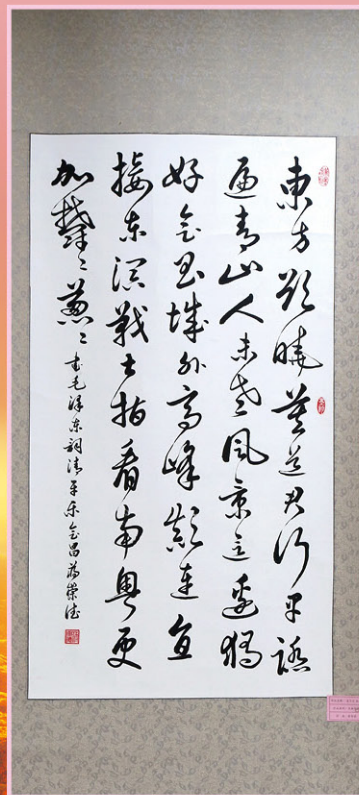 東方欲曉莫道君行早踏
遍青山人未老風景這邊獨
好會昌城外高峰顛連直
接東溟戰士指看南粵更
加鬱〻蔥〻
書毛澤東詞清平樂會昌